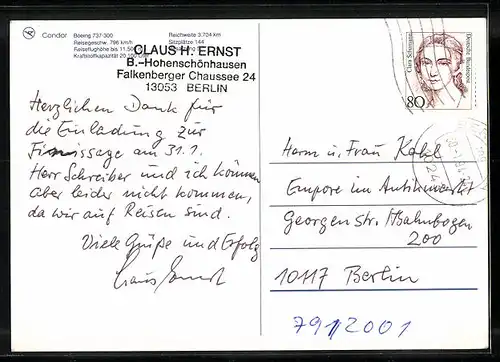 Condor
Boeing 737-300
Reisegeschw. 796 km/h
Reiseflughöhe bis 11.50
Kraftstoffkapazität 20.100
Reichweite 3.704 km
Sitzplätze 144
CLAUS H. ERNST
B.-Hohenschönhausen
Falkenberger Chaussee 24
13053 BERLIN
Herzlichen Dank für
die Einladung zur
Finissage am 31.1.
Herr Schreiber und ich können
aber leider nicht kommen,
da wir auf Reisen sind.
Viele Grüße und Erfolg
Claus Ernst
Clara Schumann
Deutsche Bundespost
80
Herrn u. Frau Kahl
Empore im Antikmarkt
Georgenstr. /Bahnbogen
200
10117 Berlin
791/2001